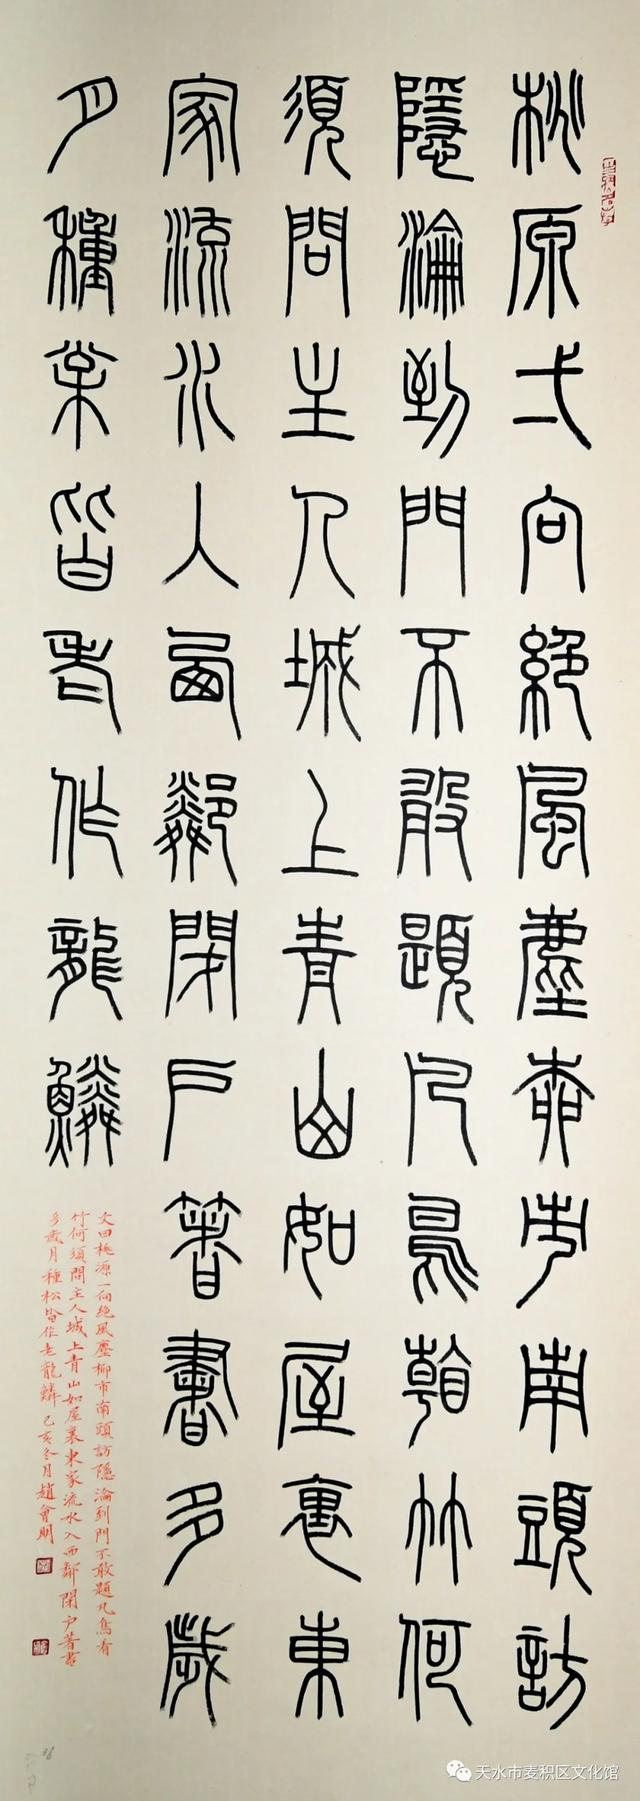 桃原弌向絕風塵桺市南頭訪
隱淪到門不敢題凡鳥看竹何
須問主人城上青山如屋裏東
家流水入西鄰閉戶著書多歲
月種松皆老作龍鱗
文曰桃源一向絕風塵柳市南頭訪隱淪到門不敢題凡鳥看
竹何須問主人城上青山如屋裏東家流水入西鄰閉戶著書
多歲月種松皆作老龍鱗 己亥冬月趙會明
天水市麦积区文化馆